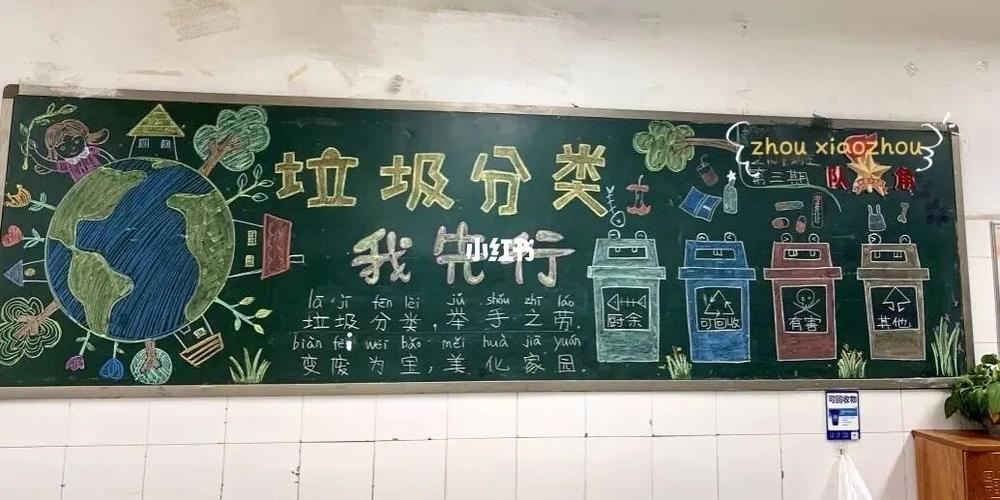 垃圾分类
我先行
小红书
lā jī fēn lèi jǔ shǒu zhī láo
垃圾分类，举手之劳。
biàn fèi wéi bǎo měi huà jiā yuán
变废为宝，美化家园。
zhou xiaozhou
第三期
队 角
厨余
可回收
有害
其他
可回收物